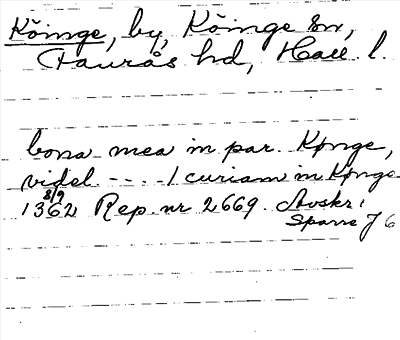 Köinge, by, Köinge sn,
Faurås hd, Hall l.
bona mea in par. Kønge,
videl ---- / curiam in Kønge
8/9
1362 Rep. nr 2669. Avskr i
Sparre J 6